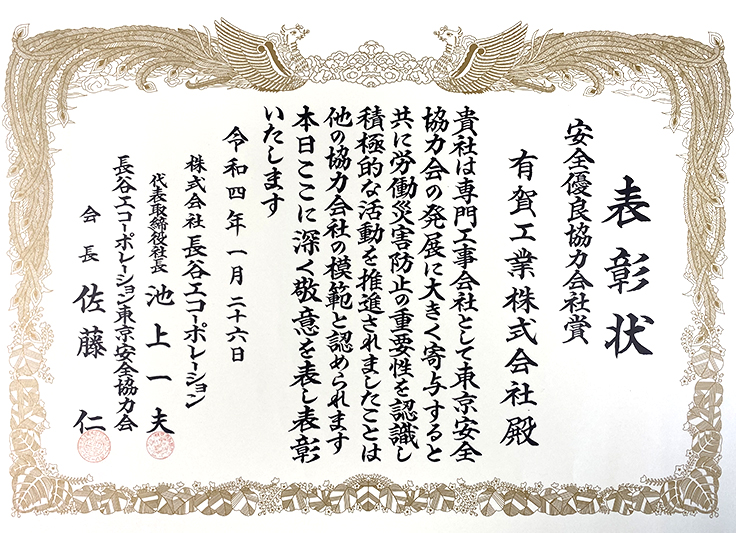 表彰状
安全優良協力会社賞
有賀工業株式会社殿
貴社は専門工事会社として東京安全
協力会の発展に大きく寄与すると
共に労働災害防止の重要性を認識し
積極的な活動を推進されましたことは
他の協力会社の模範と認められます
本日ここに深く敬意を表し表彰
いたします
令和四年一月二十六日
株式会社長谷工コーポレーション
代表取締役社長 池上一夫
長谷工コーポレーション東京安全協力会
会長 佐藤 仁